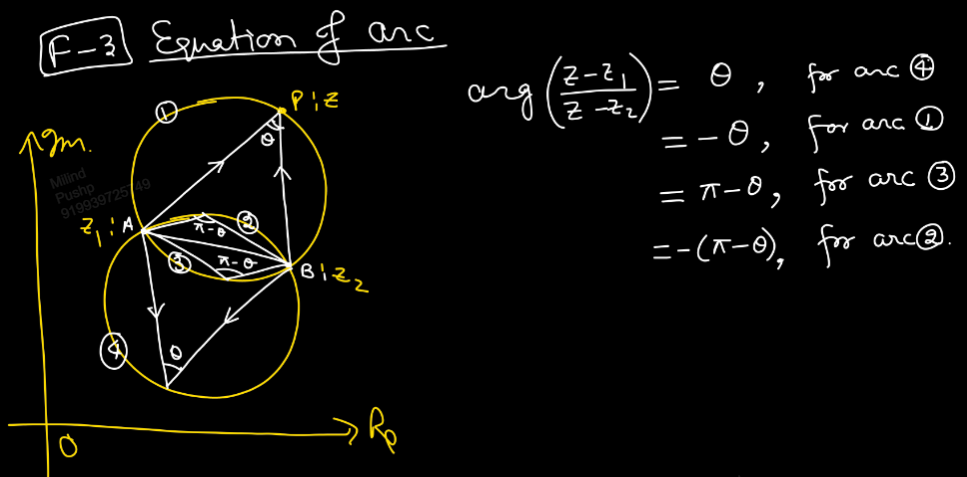 F-3 Equation of arc
arg((z-z₁)/(z-z₂)) = θ, for arc ④
= -θ, for arc ①
= π-θ, for arc ③
= -(π-θ), for arc ②.
① P:z
Im.
θ
Milind
Pushp
919939725749
z₁: A
②
π-θ
③
π-θ
B:z₂
④
θ
Re
O